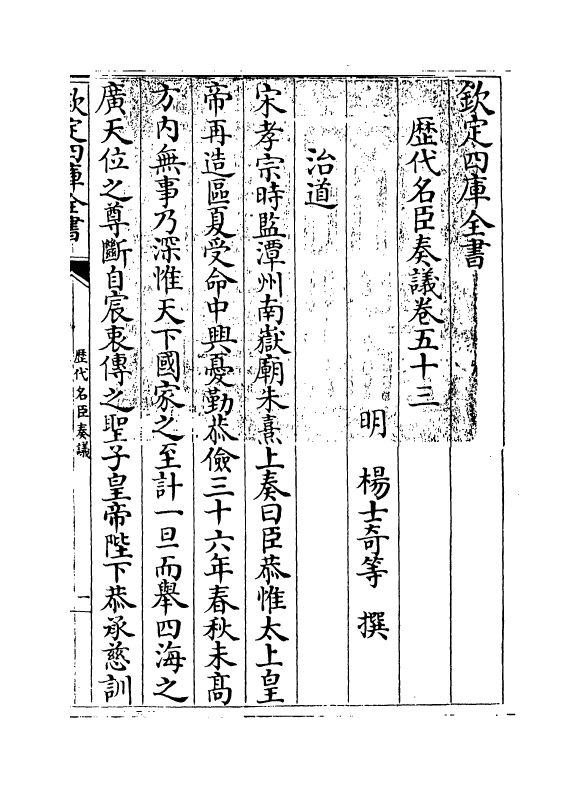 欽定四庫全書
歴代名臣奏議卷五十三
明 楊士奇等 撰
治道
宋孝宗時監潭州南嶽廟朱熹上奏曰臣恭惟太上皇
帝再造區夏受命中興憂勤恭儉三十六年春秋未髙
方内無事乃深惟天下國家之至計一旦而舉四海之
廣天位之尊斷自宸衷傳之聖子皇帝陛下恭承慈訓
欽定四庫全書
歴代名臣奏議
一